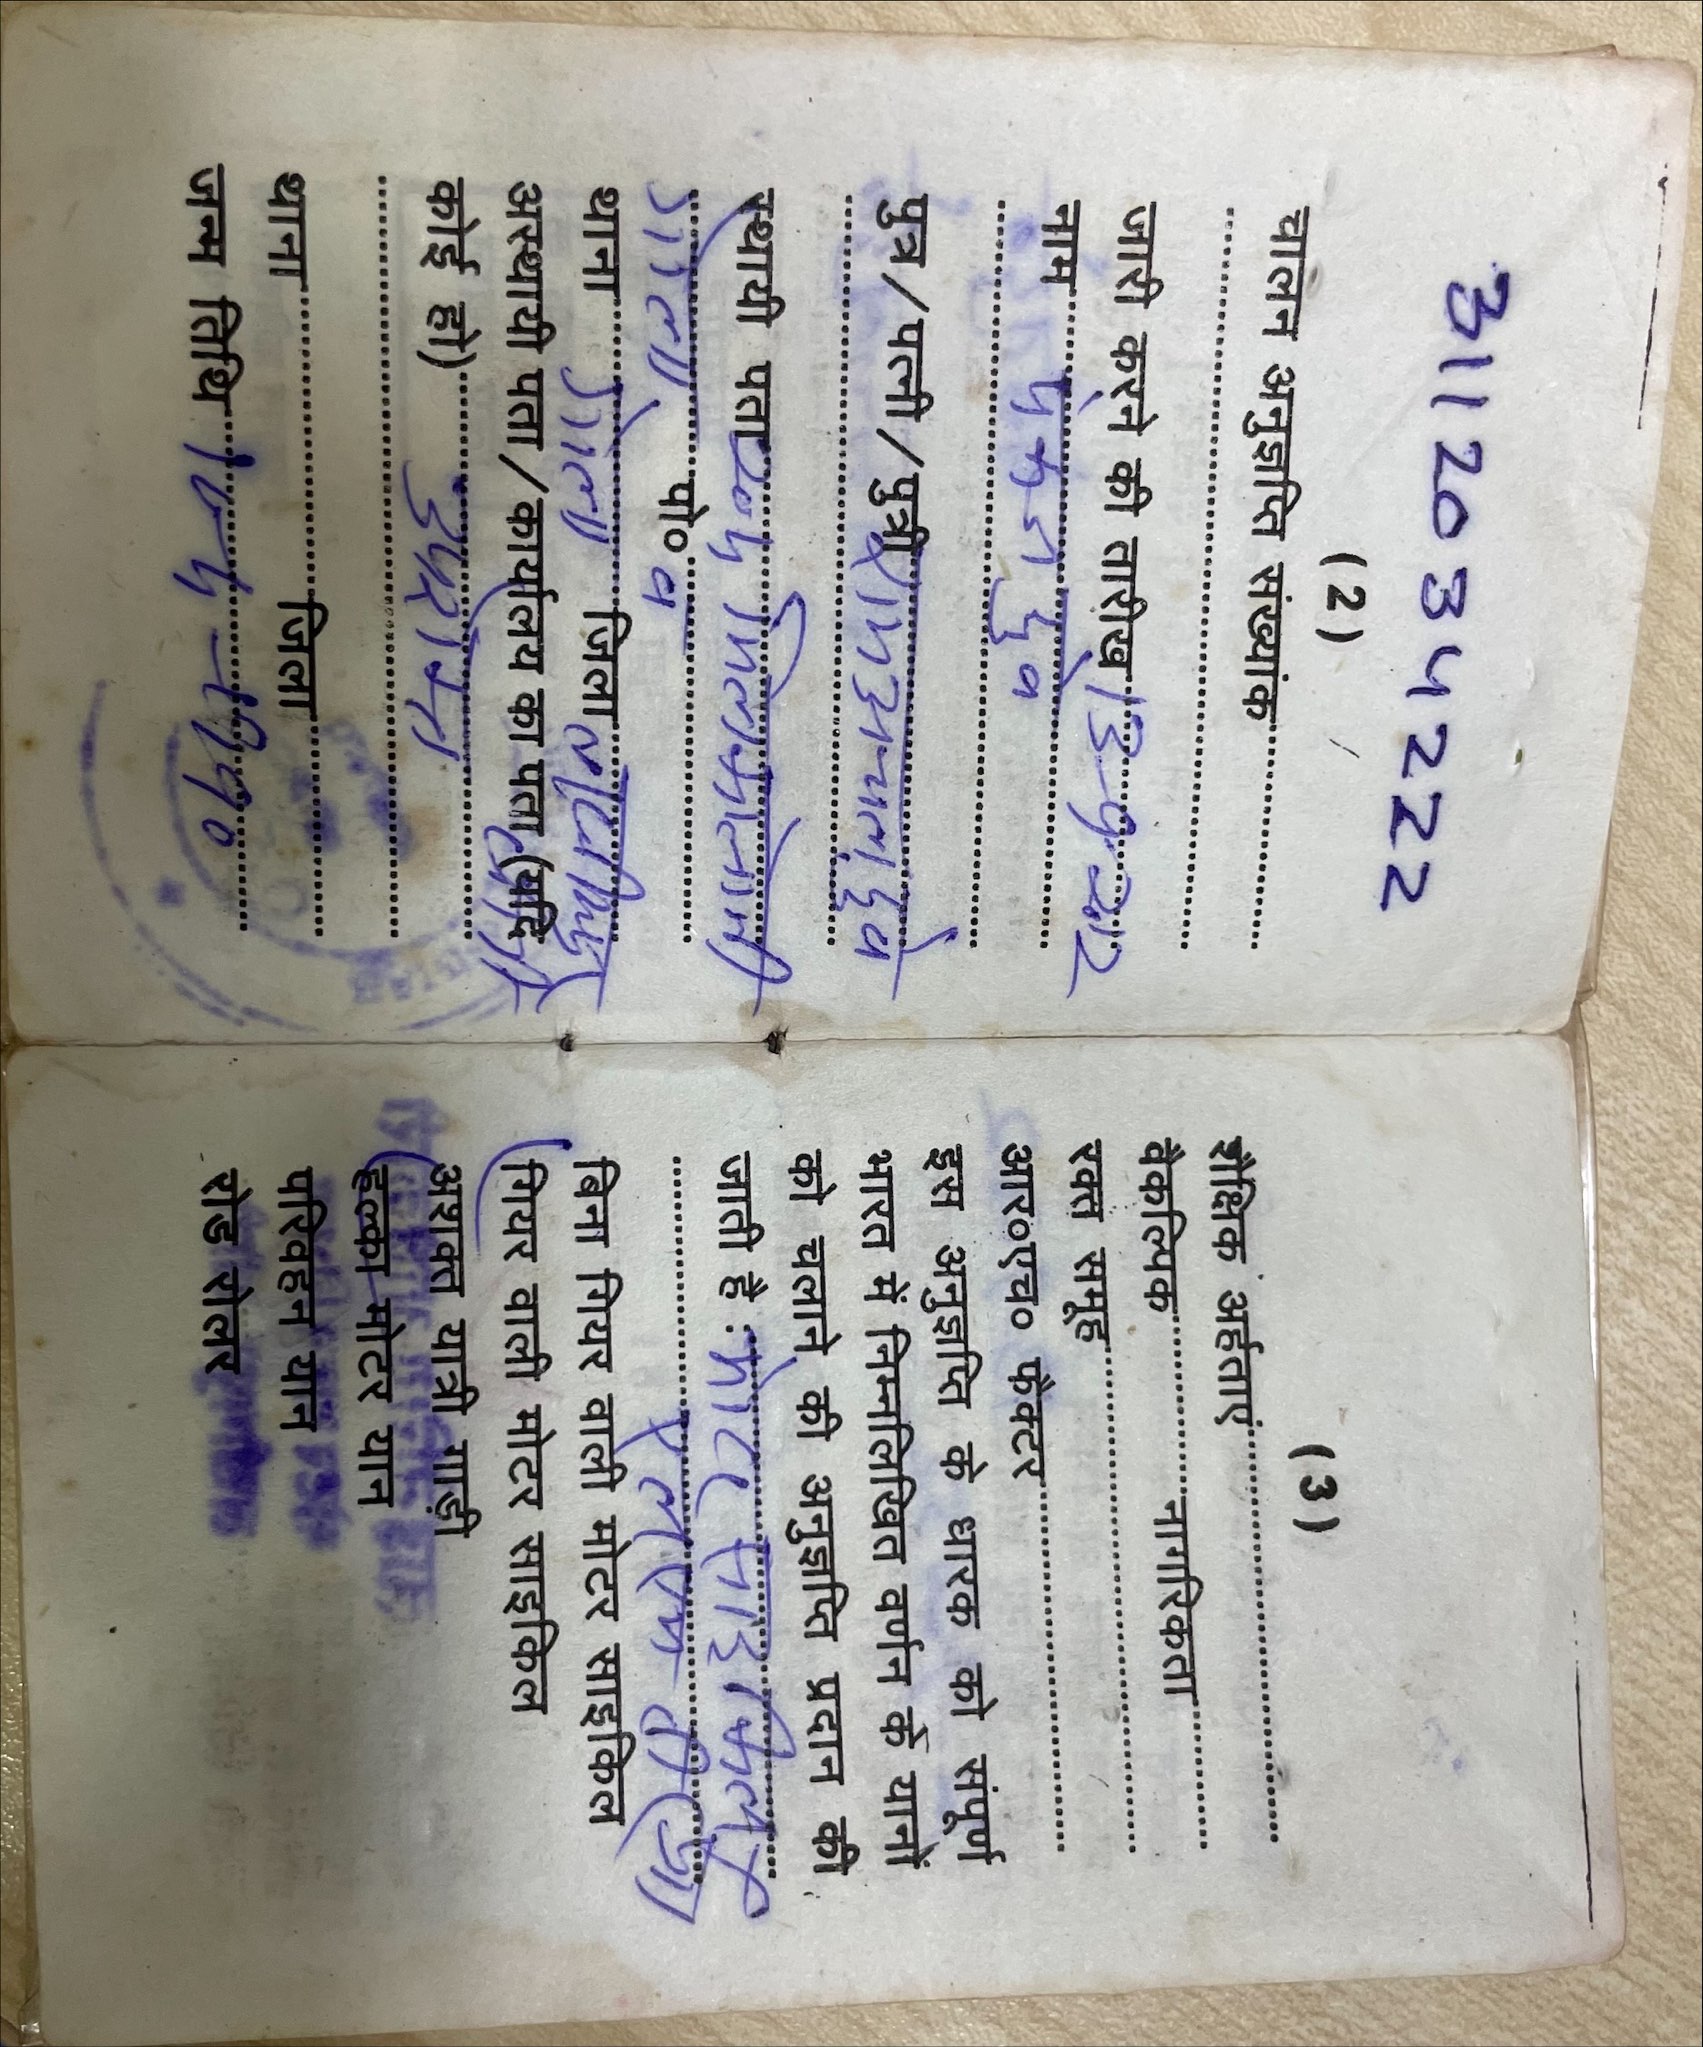 3112034222
(2)
चालन अनुज्ञप्ति संख्यांक
जारी करने की तारीख
नाम पंकज दुबे
पुत्र/पत्नी/पुत्री
स्थायी पता
गोला पो०
थाना गोला जिला
अस्थायी पता/कार्यालय का पता (यदि
कोई हो) उपरोक्त
थाना जिला
जन्म तिथि
(3)
शैक्षिक अर्हताएं
वैकल्पिक नागरिकता
रक्त समूह
आर०एच० फैक्टर
इस अनुज्ञप्ति के धारक को संपूर्ण
भारत में निम्नलिखित वर्णन के यानों
को चलाने की अनुज्ञप्ति प्रदान की
जाती है : मोटर साइकिल
बिना गियर वाली मोटर साइकिल
गियर वाली मोटर साइकिल
अशक्त यात्री गाड़ी
हल्का मोटर यान
परिवहन यान
रोड रोलर